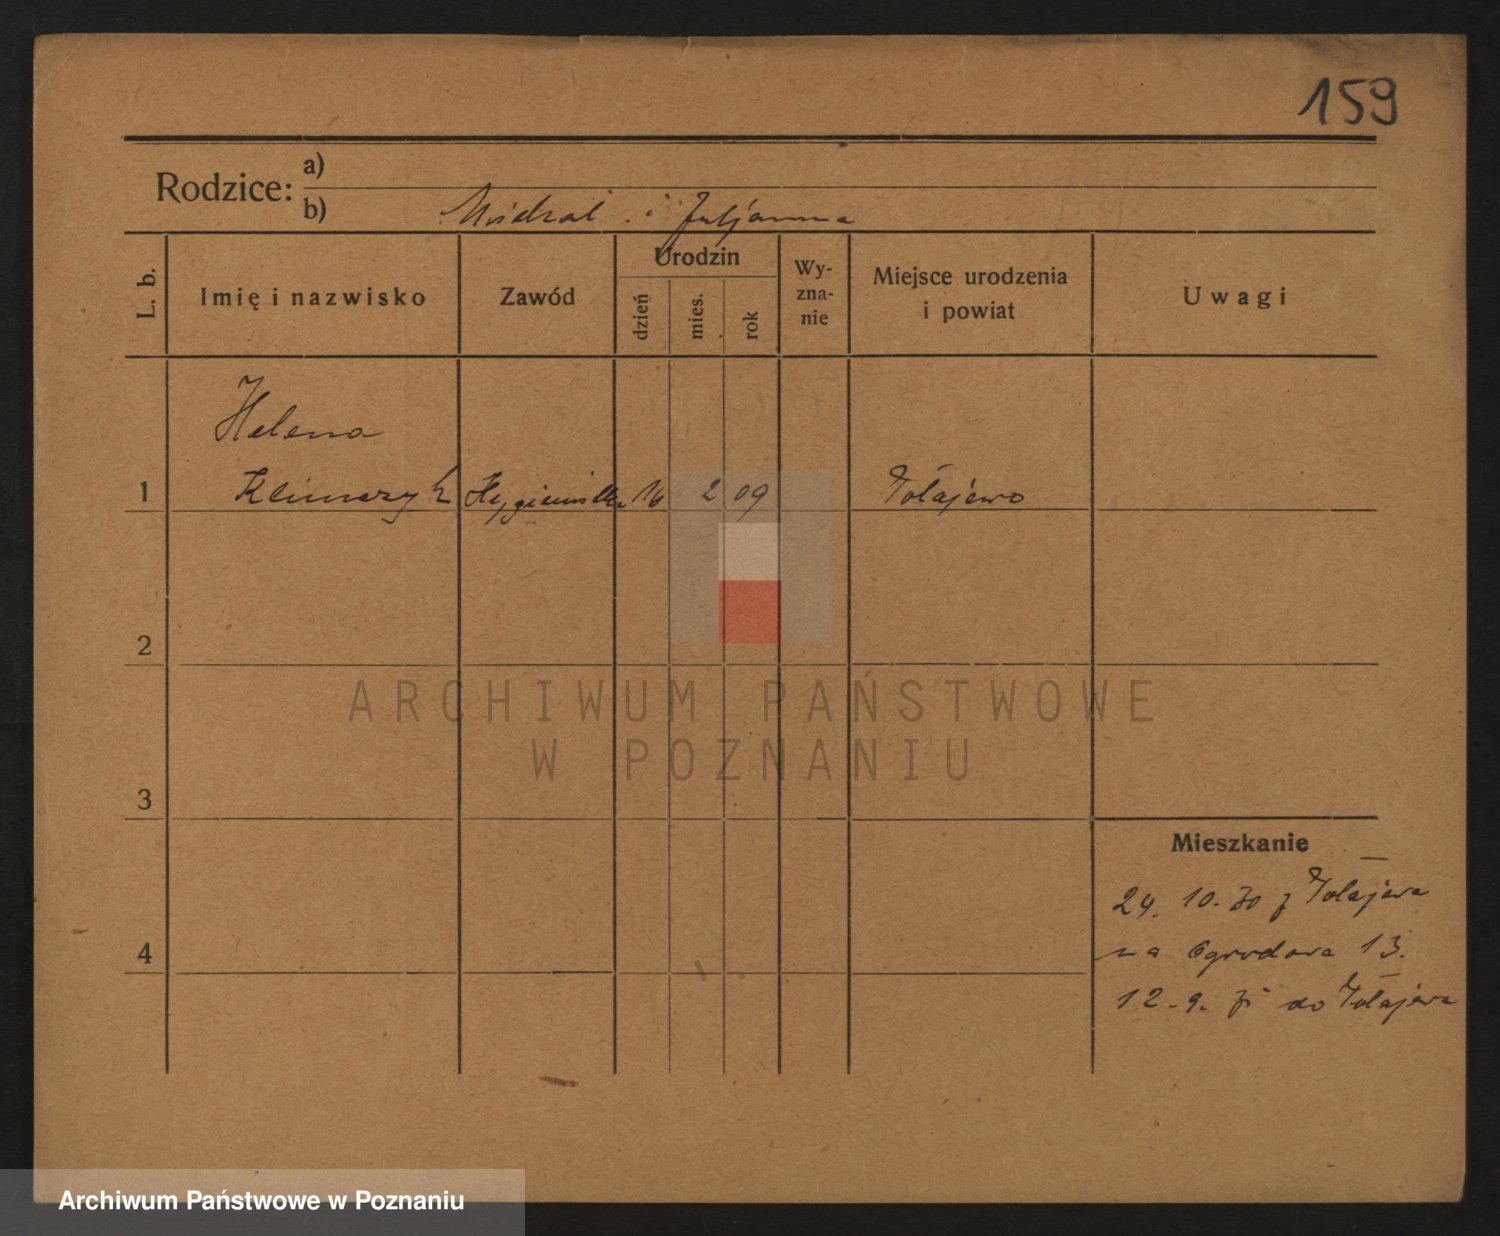 159
Rodzice: a)
b) i Juljanna
L. b. Imię i nazwisko Zawód Urodzin dzień mies. rok Wy-zna-nie Miejsce urodzenia i powiat Uwagi
Helena
1 Klimczyk 16 2 09
2
ARCHIWUM PAŃSTWOWE
W POZNANIU
3
Mieszkanie
24. 10. 30 z
na Ogrodowa 13.
4
12. 9. do
Archiwum Państwowe w Poznaniu